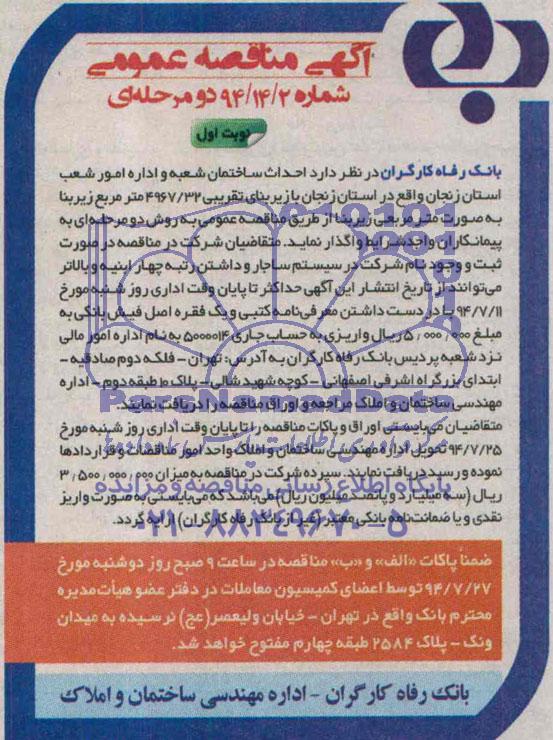 آگهی مناقصه عمومی
شماره ۹۴/۱۴/۲ دو مرحله‌ای
نوبت اول
بانک رفاه کارگران در نظر دارد احداث ساختمان شعبه و اداره امور شعب
استان زنجان واقع در استان زنجان با زیربنای تقریبی ۴۹۶۷/۳۲ متر مربع زیربنا
به صورت متر مربعی زیربنا از طریق مناقصه عمومی به روش دو مرحله‌ای به
پیمانکاران واجد شرایط واگذار نماید. متقاضیان شرکت در مناقصه در صورت
ثبت و وجود نام شرکت در سیستم ساجار و داشتن رتبه چهار ابنیه و بالاتر
می‌توانند از تاریخ انتشار این آگهی حداکثر تا پایان وقت اداری روز شنبه مورخ
۹۴/۷/۱۱ با در دست داشتن معرفی‌نامه کتبی و یک فقره اصل فیش بانکی به
مبلغ ۵,۰۰۰,۰۰۰ ریال واریزی به حساب جاری ۵۰۰۰۰۱۴ به نام اداره امور مالی
نزد شعبه پردیس بانک رفاه کارگران به آدرس: تهران - فلکه دوم صادقیه -
ابتدای بزرگراه اشرفی اصفهانی - کوچه شهید شالی - پلاک ۱۰ طبقه دوم - اداره
مهندسی ساختمان و املاک مراجعه و اوراق مناقصه را دریافت نمایند.
متقاضیان می‌بایستی اوراق و پاکات مناقصه را تا پایان وقت اداری روز شنبه مورخ
۹۴/۷/۲۵ تحویل اداره مهندسی ساختمان و املاک واحد امور مناقصات و قراردادها
نموده و رسید دریافت نمایند. سپرده شرکت در مناقصه به میزان ۳,۵۰۰,۰۰۰,۰۰۰
ریال (سه میلیارد و پانصد میلیون ریال) می‌باشد که می‌بایستی به صورت واریز
نقدی و یا ضمانت‌نامه بانکی معتبر (غیر از بانک رفاه کارگران) ارایه گردد.
ضمناً پاکات «الف» و «ب» مناقصه در ساعت ۹ صبح روز دوشنبه مورخ
۹۴/۷/۲۷ توسط اعضای کمیسیون معاملات در دفتر عضو هیأت مدیره
محترم بانک واقع در تهران - خیابان ولیعصر(عج) نرسیده به میدان
ونک - پلاک ۲۵۸۴ طبقه چهارم مفتوح خواهد شد.
بانک رفاه کارگران - اداره مهندسی ساختمان و املاک
پایگاه اطلاع رسانی مناقصه و مزایده
۰۲۱-۸۸۳۴۹۶۷۰-۵